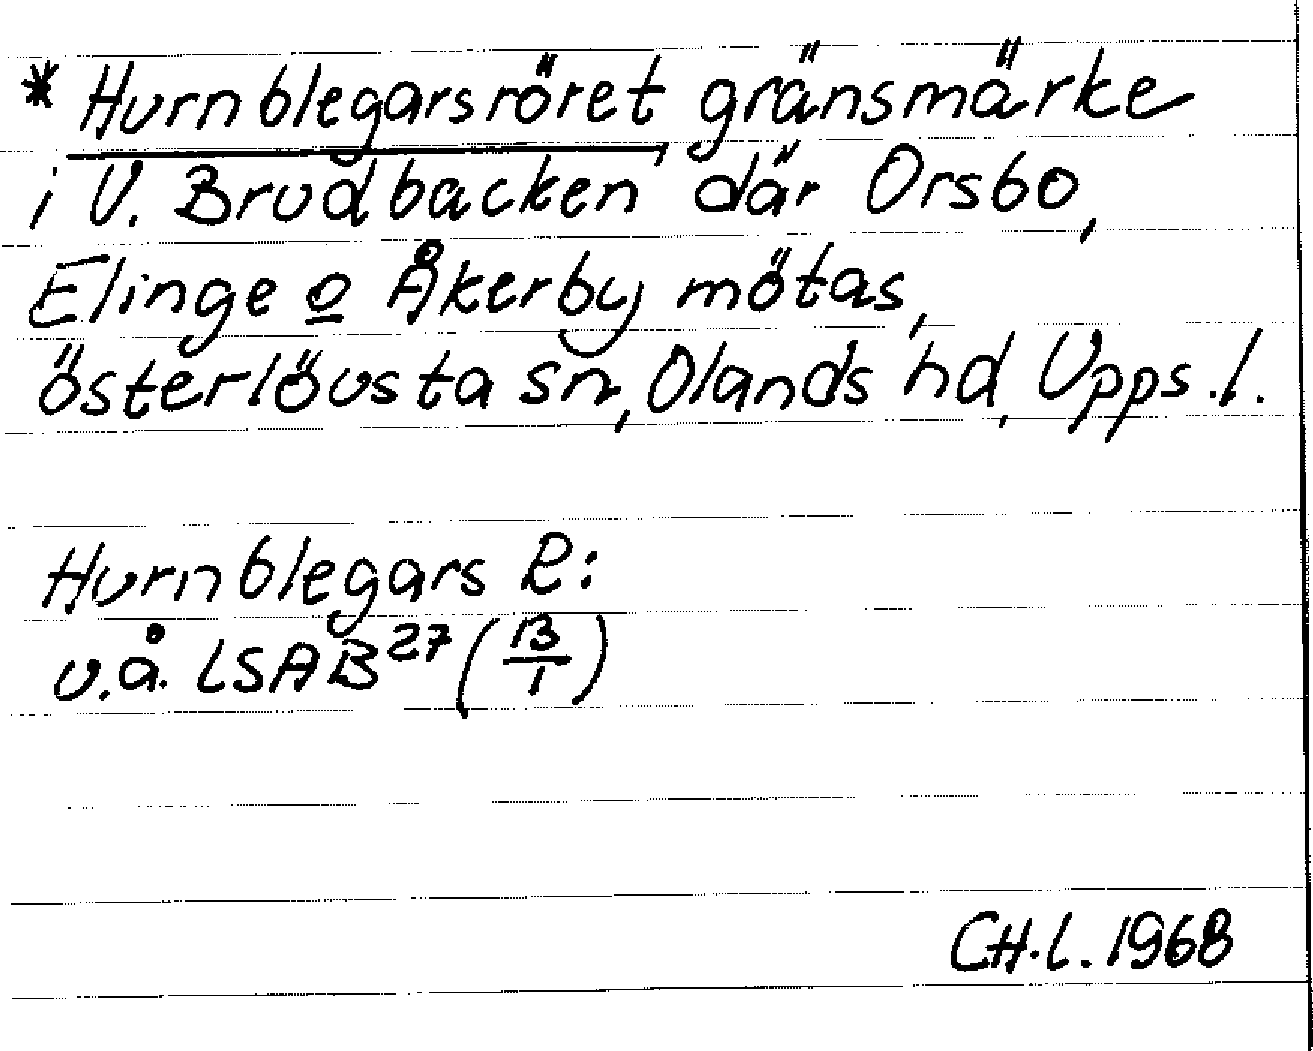 * Hurnblegarsröret, gränsmärke
i V. Brudbacken där Orsbo,
Elinge o Åkerby mötas,
österlövsta sn, Olands hd, Upps. l.
Hurnblegars R:
v.å. LSA B27 (B/1)
CH.L. 1968